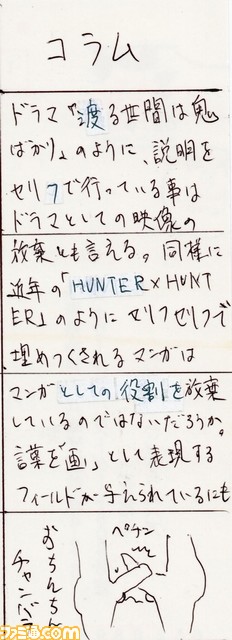 コラム
ドラマ『渡る世間は鬼
ばかり』のように、説明を
セリフで行っている事は
ドラマとしての映像の
放棄とも言える。同様に
近年の「HUNTER×HUNT
ER」のようにセリフセリフで
埋めつくされるマンガは
マンガとしての役割を放棄
しているのではないだろうか。
言葉を「画」として表現する
フィールドが与えられているにも
ペチン
おちんちん
チャンバラ
ファミ通.com